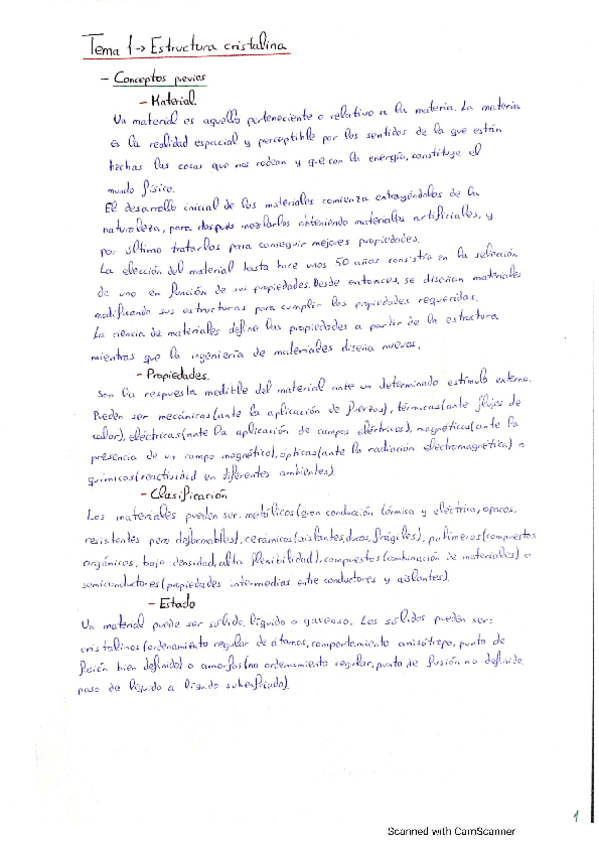 Tema 1→ Estructura cristalina
- Conceptos previos
- Material.
Un material es aquello perteneciente o relativo a la materia. La materia
es la realidad espacial y perceptible por los sentidos de la que están
hechas las cosas que nos rodean y que con la energía, constituye el
mundo físico.
El desarrollo inicial de los materiales comienza extrayéndolos de la
naturaleza, para después mezclarlos obteniendo materiales artificiales, y
por último tratarlos para conseguir mejores propiedades.
La elección del material hasta hace unos 50 años consistía en la selección
de uno en función de sus propiedades. Desde entonces, se diseñan materiales
modificando sus estructuras para cumplir las propiedades requeridas.
La ciencia de materiales define las propiedades a partir de la estructura
mientras que la ingeniería de materiales diseña nuevos.
- Propiedades.
Son la respuesta medible del material ante un determinado estímulo externo.
Pueden ser mecánicas(ante la aplicación de fuerzas), térmicas(ante flujos de
calor), eléctricas(ante la aplicación de campos eléctricos), magnéticas(ante la
presencia de un campo magnético), ópticas(ante la radiación electromagnética) o
químicas(reactividad en diferentes ambientes).
- Clasificación
Los materiales pueden ser: metálicos(gran conducción térmica y eléctrica, opacos,
resistentes pero deformables), cerámicos(aislantes, duros, frágiles), polímeros(compuestos
orgánicos, baja densidad, alta flexibilidad), compuestos(combinación de materiales) o
semiconductores(propiedades intermedias entre conductores y aislantes).
- Estado
Un material puede ser sólido, líquido o gaseoso. Los sólidos pueden ser:
cristalinos(ordenamiento regular de átomos, comportamiento anisótropo, punto de
fusión bien definido) o amorfos(no ordenamiento regular, punto de fusión no definido,
paso de líquido a líquido subenfriado).
1
Scanned with CamScanner